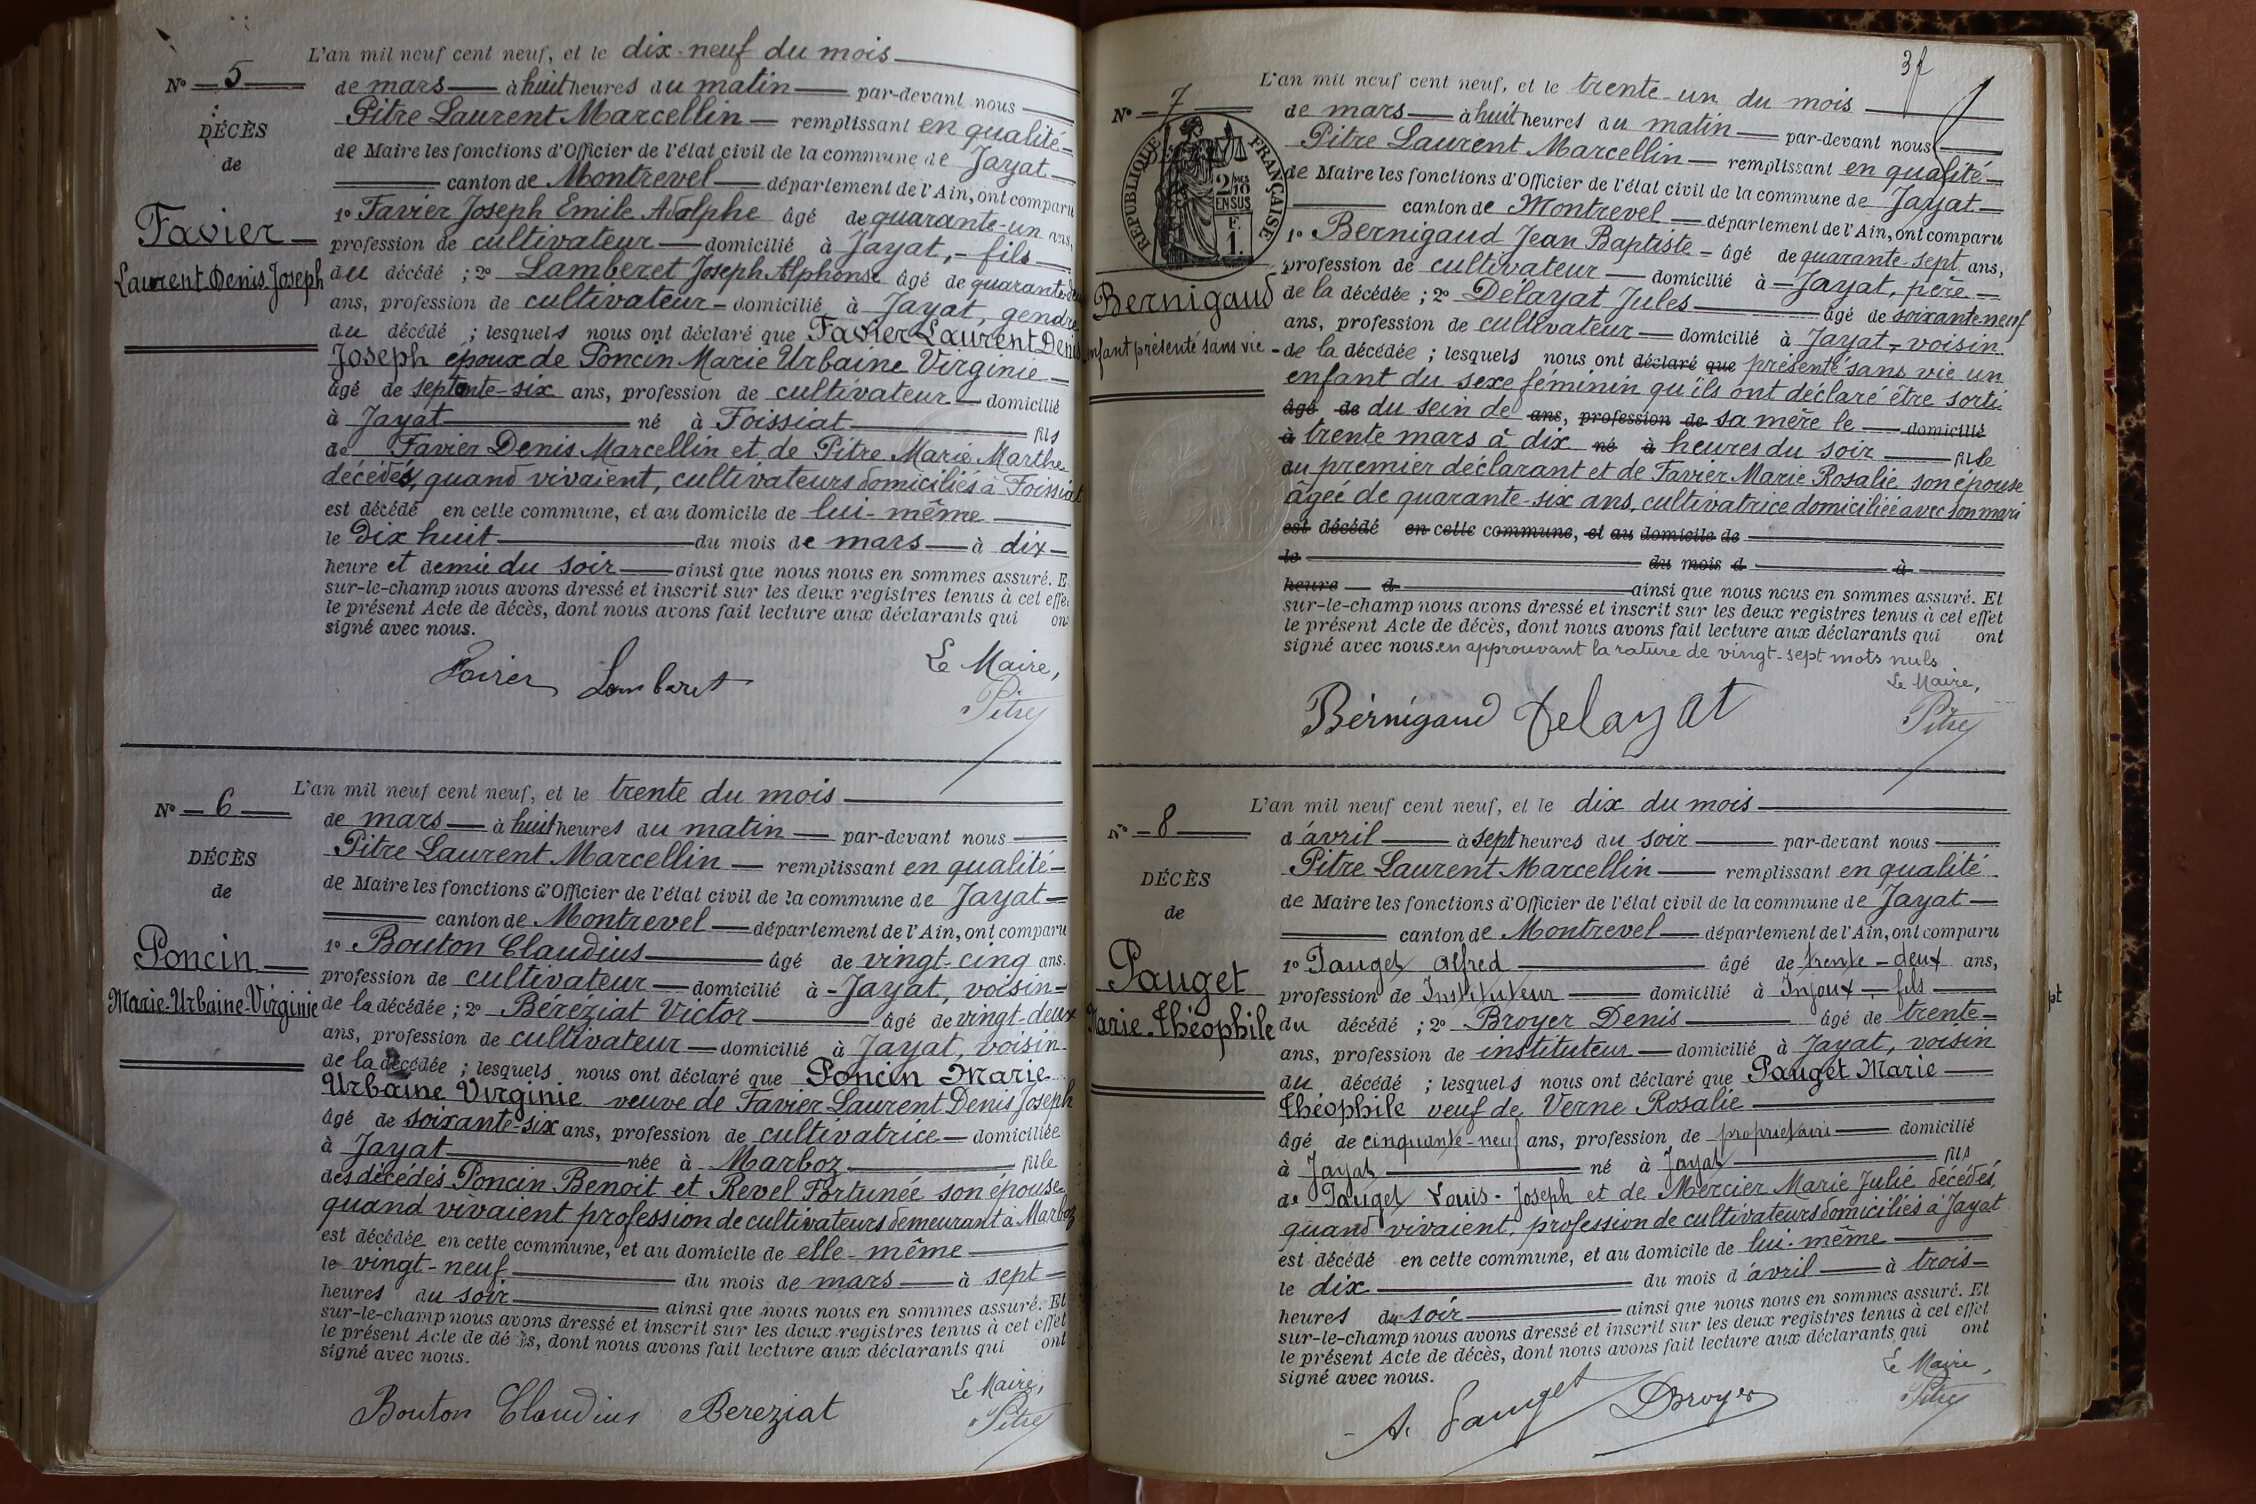 L'an mil neuf cent neuf, et le dix-neuf du mois
N° 5
de mars à huit heures du matin par-devant nous
Pitre Laurent Marcellin remplissant en qualité
DÉCÈS
de Maire les fonctions d'Officier de l'état civil de la commune de Jayat
de
canton de Montrevel département de l'Ain, ont comparu
1° Favier Joseph Emile Adolphe âgé de quarante-un ans,
Favier
profession de cultivateur domicilié à Jayat, fils
Laurent Denis Joseph
du décédé ; 2° Lamberet Joseph Alphonse âgé de quarante-deux
ans, profession de cultivateur domicilié à Jayat, gendre
du décédé ; lesquels nous ont déclaré que Favier Laurent Denis
Joseph époux de Poncin Marie Urbaine Virginie
âgé de septante-six ans, profession de cultivateur domicilié
à Jayat né à Foissiat fils
de Favier Denis Marcellin et de Pitre Marie Marthe
décédés, quand vivaient, cultivateurs domiciliés à Foissiat
est décédé en cette commune, et au domicile de lui-même
le Dix huit du mois de mars à dix
heure et demie du soir ainsi que nous nous en sommes assuré. E
sur-le-champ nous avons dressé et inscrit sur les deux registres tenus à cet effet
le présent Acte de décès, dont nous avons fait lecture aux déclarants qui ont
signé avec nous.
Le Maire,
Favier Lamberet
Pitre
L'an mil neuf cent neuf, et le trente du mois
N° 6
de mars à huit heures du matin par-devant nous
Pitre Laurent Marcellin remplissant en qualité
DÉCÈS
de Maire les fonctions d'Officier de l'état civil de la commune de Jayat
de
canton de Montrevel département de l'Ain, ont comparu
1° Bouton Claudius âgé de vingt-cinq ans.
Poncin
profession de cultivateur domicilié à Jayat, voisin
Marie-Urbaine-Virginie
de la décédée ; 2° Béréziat Victor âgé de vingt-deux
ans, profession de cultivateur domicilié à Jayat, voisin
de la décédée ; lesquels nous ont déclaré que Poncin Marie
Urbaine Virginie veuve de Favier Laurent Denis Joseph
âgé de soixante-six ans, profession de cultivatrice domiciliée
à Jayat née à Marboz fille
des décédés Poncin Benoit et Revel Fortunée son épouse
quand vivaient profession de cultivateurs demeurant à Marboz
est décédée en cette commune, et au domicile de elle-même
le vingt-neuf du mois de mars à sept
heures du soir ainsi que nous nous en sommes assuré. Et
sur-le-champ nous avons dressé et inscrit sur les deux registres tenus à cet effet
le présent Acte de décès, dont nous avons fait lecture aux déclarants qui ont
signé avec nous.
Le Maire,
Bouton Claudius Bereziat
Pitre
37
L'an mil neuf cent neuf, et le trente-un du mois
N° 7
de mars à huit heures du matin par-devant nous
Pitre Laurent Marcellin remplissant en qualité
RÉPUBLIQUE FRANÇAISE
2/10 EN SUS
F. 1.
de Maire les fonctions d'Officier de l'état civil de la commune de Jayat
canton de Montrevel département de l'Ain, ont comparu
1° Bernigaud Jean Baptiste âgé de quarante-sept ans,
profession de cultivateur domicilié à Jayat, père
Bernigaud
de la décédée ; 2° Délayat Jules âgé de soixante neuf
ans, profession de cultivateur domicilié à Jayat, voisin
enfant présenté sans vie
de la décédée ; lesquels nous ont déclaré que présenté sans vie un
enfant du sexe féminin qu'ils ont déclaré être sorti
âgé de du sein de ans, profession de sa mère le domicilié
à trente mars à dix né à heures du soir fille
du premier déclarant et de Favier Marie Rosalie son épouse
âgée de quarante-six ans, cultivatrice domiciliée avec son mari
est décédé en cette commune, et au domicile de
le du mois d à
heure d ainsi que nous nous en sommes assuré. Et
sur-le-champ nous avons dressé et inscrit sur les deux registres tenus à cet effet
le présent Acte de décès, dont nous avons fait lecture aux déclarants qui ont
signé avec nous. en approuvant la rature de vingt-sept mots nuls
Le Maire,
Bérnigaud Delayat
Pitre
L'an mil neuf cent neuf, et le dix du mois
N° 8
d'avril à sept heures du soir par-devant nous
Pitre Laurent Marcellin remplissant en qualité
DÉCÈS
de Maire les fonctions d'Officier de l'état civil de la commune de Jayat
de
canton de Montrevel département de l'Ain, ont comparu
1° Pauget Alfred âgé de trente-deux ans,
Pauget
profession de Instituteur domicilié à Injoux, fils
Marie-Théophile
du décédé ; 2° Broyer Denis âgé de trente
ans, profession de instituteur domicilié à Jayat, voisin
du décédé ; lesquels nous ont déclaré que Pauget Marie
Théophile veuf de Verne Rosalie
âgé de cinquante-neuf ans, profession de propriétaire domicilié
à Jayat né à Jayat fils
de Pauget Louis-Joseph et de Mercier Marie Julie décédés,
quand vivaient, profession de cultivateurs domiciliés à Jayat
est décédé en cette commune, et au domicile de lui-même
le dix du mois d'avril à trois
heures du soir ainsi que nous nous en sommes assuré. Et
sur-le-champ nous avons dressé et inscrit sur les deux registres tenus à cet effet
le présent Acte de décès, dont nous avons fait lecture aux déclarants qui ont
signé avec nous.
Le Maire,
A. Pauget DBroyer
Pitre